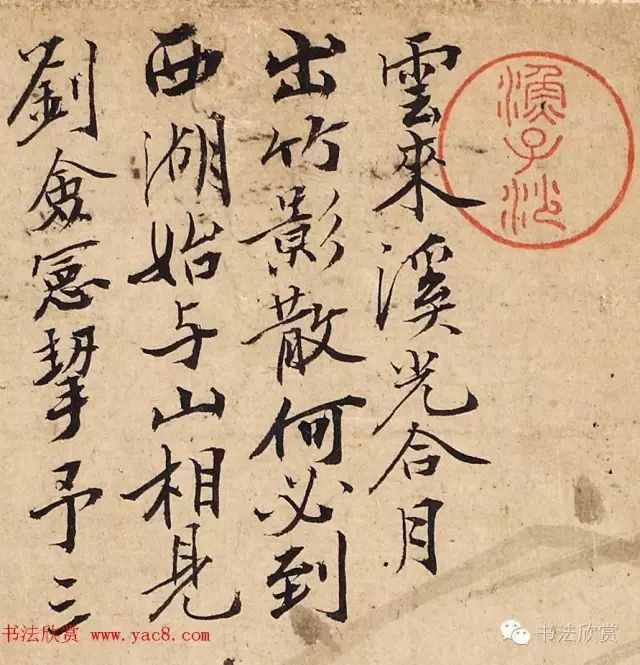 雲來溪光合月
出竹影散何必到
西湖始与山相見
劉僉憲挈予三
漁子沙
书法欣赏 www.yac8.com
书法欣赏